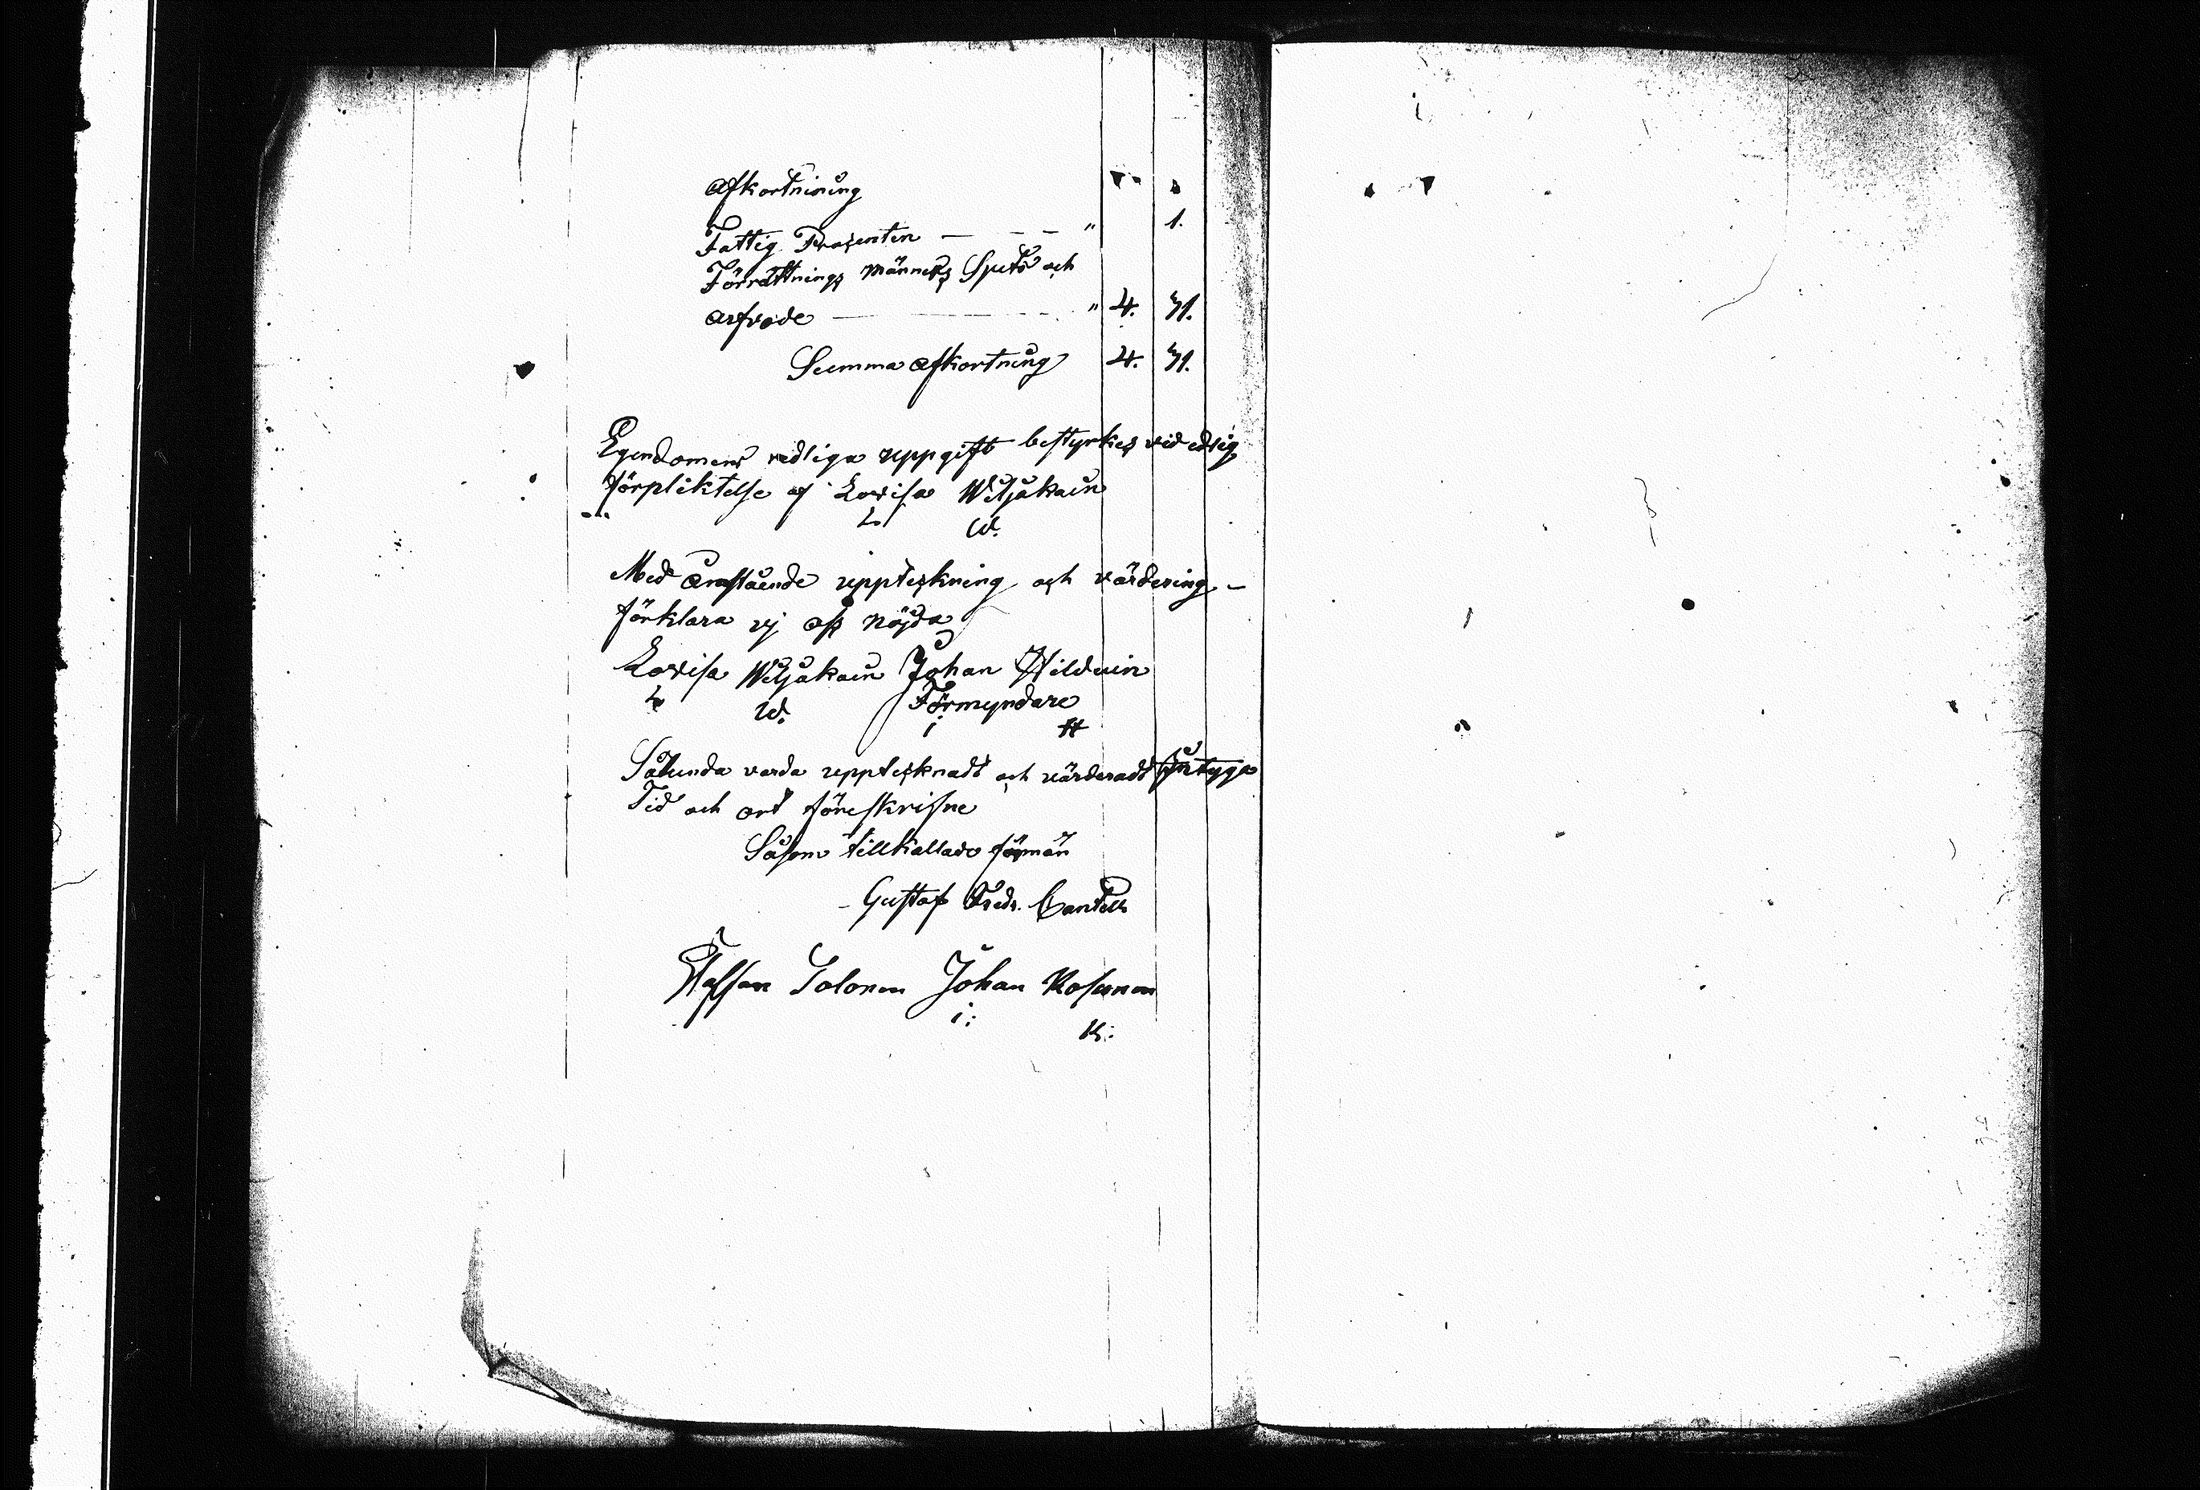 Afkortning
Fattig Prosenten — — — " 1.
Förrättnings männens Spets och
arfvode — — — " 4. 71.
Summa Afkortning 4. 71.
Egendomens redliga uppgift bestyrkes vid edlig
förpliktelse af Lovisa Wiljakain
L W.
Med Omstående uppteckning och värdering –
förklara vj oss nöjda
Lovisa Wiljakain Johan Hilduin
L W. Förmyndare
i H
Sålunda varda upptecknadt och värderadt Intyga
Tid och ort föreskrifne
Såsom tillkallade förmän
Gustaf Fredr. Cantell
Staffan Solonen Johan Kosunen
i: K: